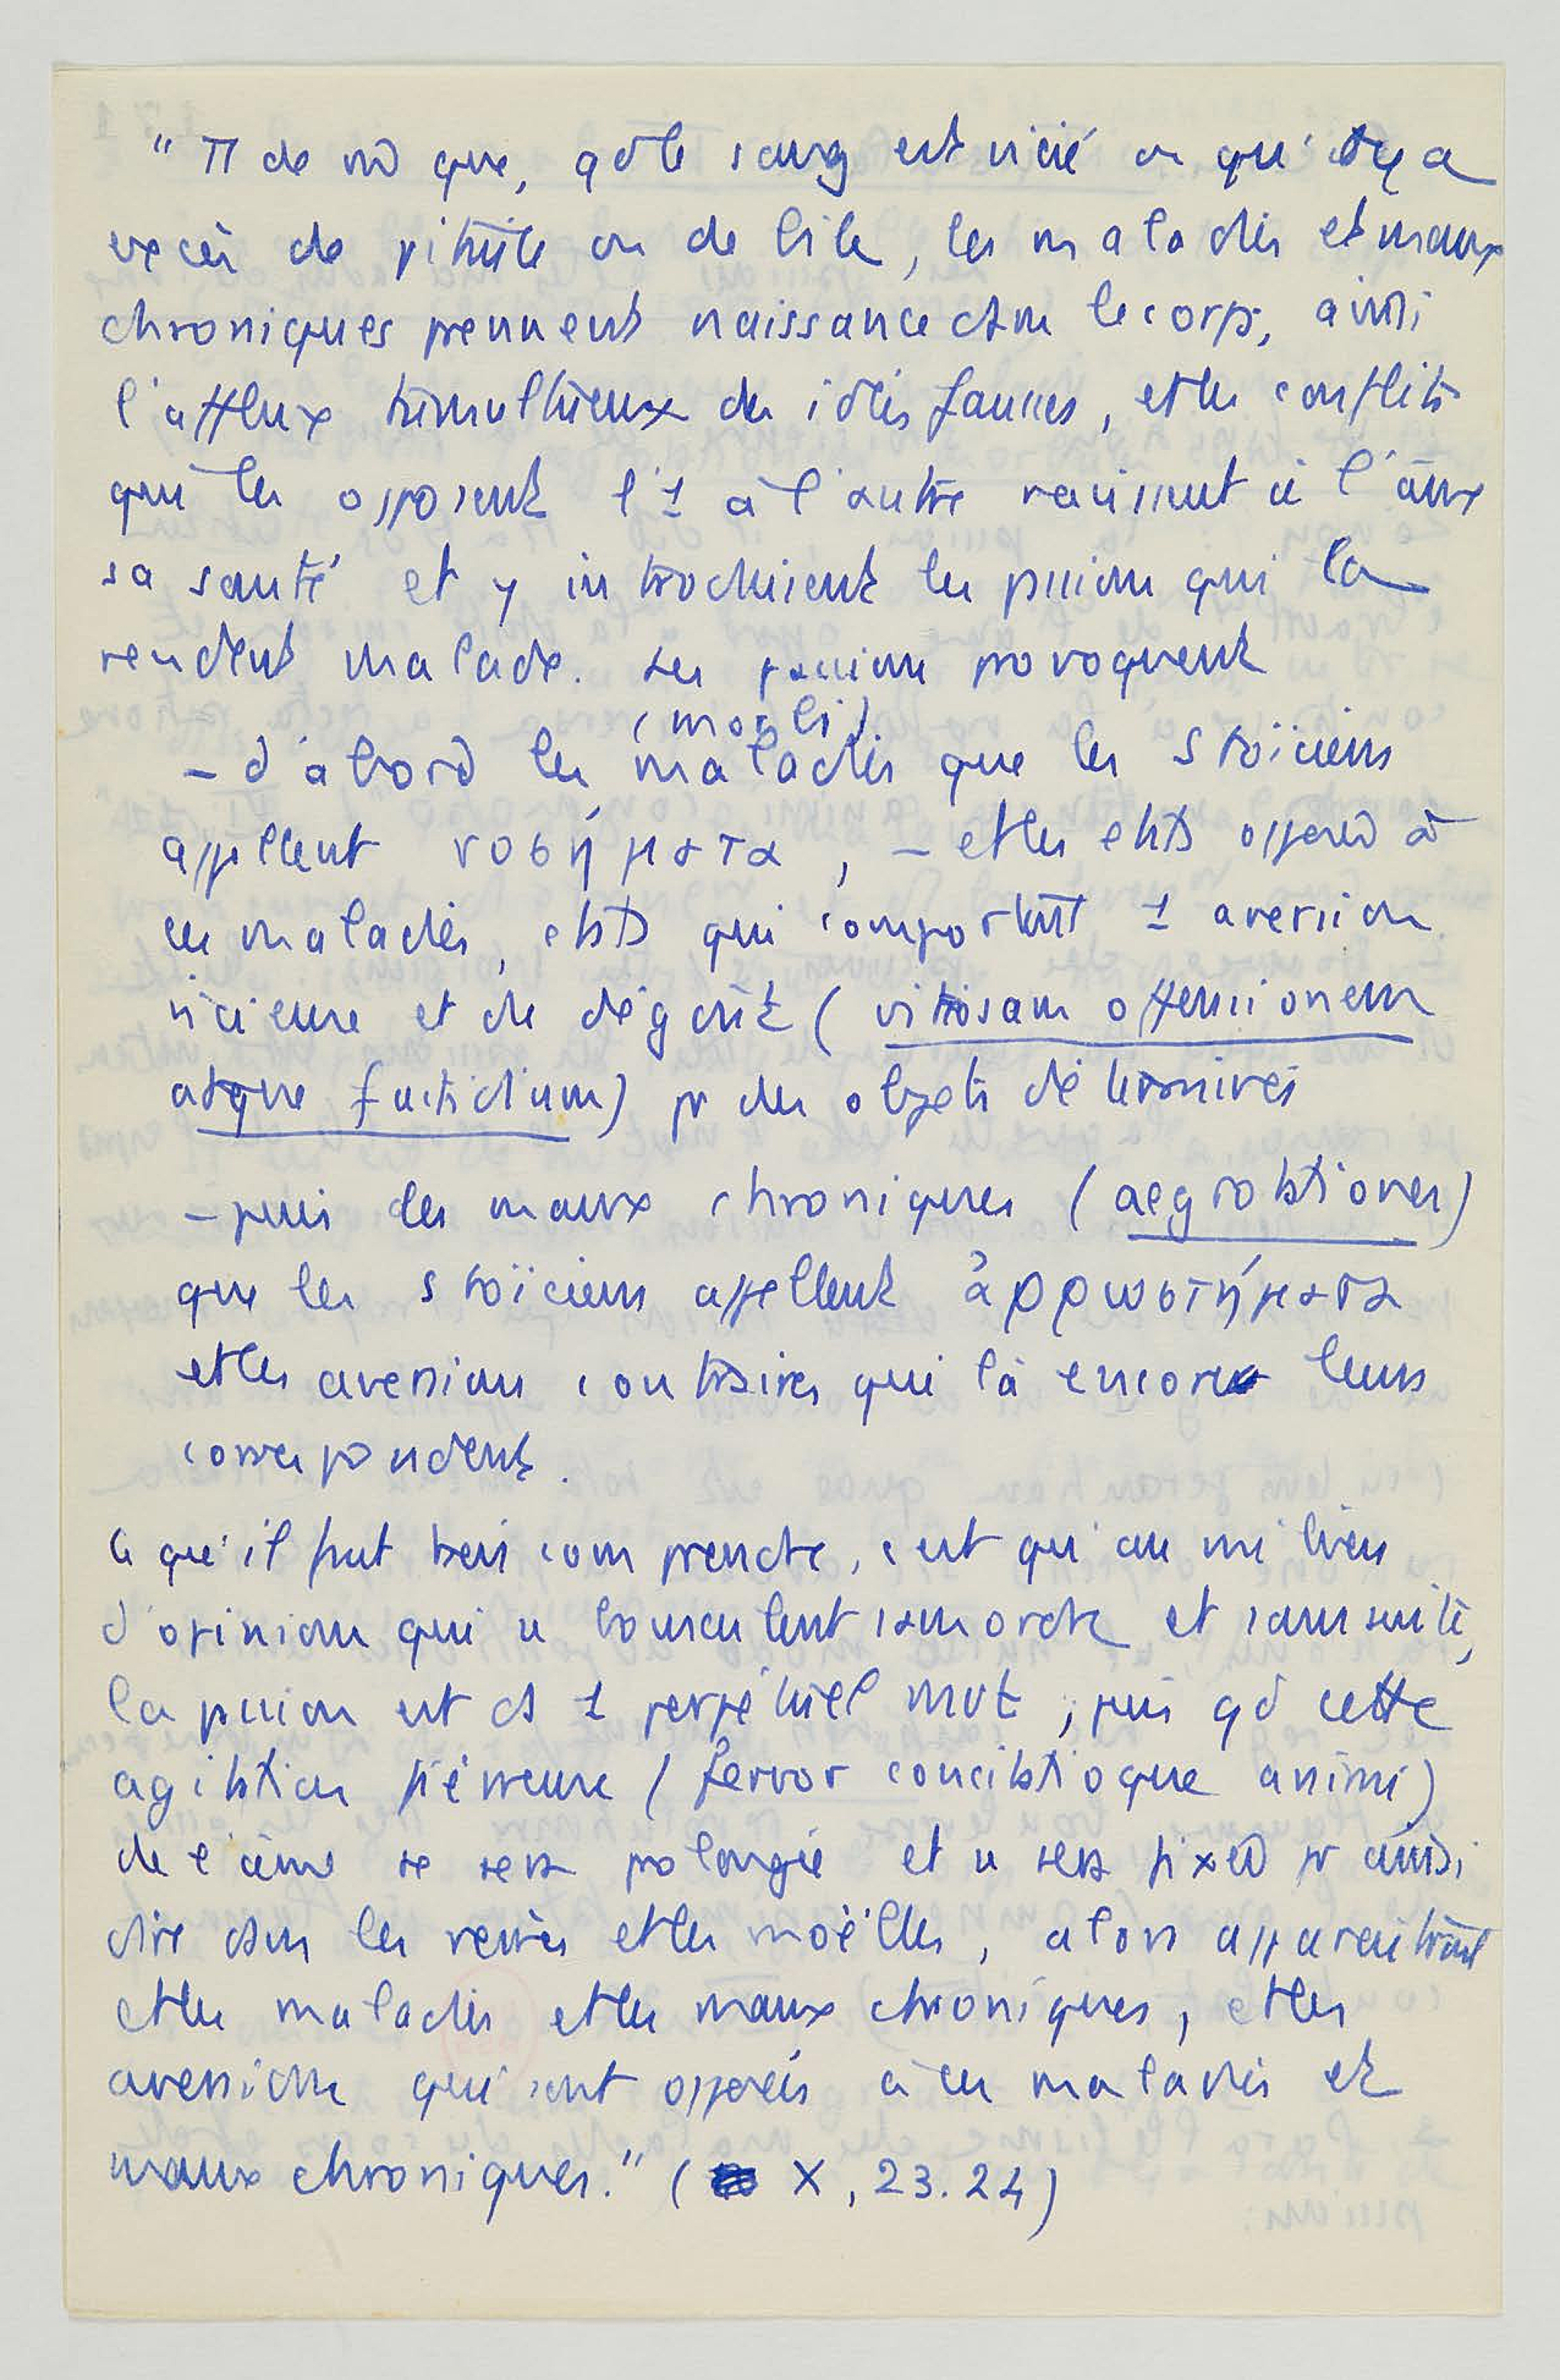 " π de m̄ que, qd le sang est vicié ou qu'il y a
excès de pituite ou de bile, les maladies et maux
chroniques prennent naissance dans le corps, ainsi
l'afflux tumultueux des idées fausses, et les conflits
qui les opposent l'1 à l'autre ravissent à l'âme
sa santé et y introduisent les passions qui la
rendent malade. Les passions provoquent
(morbi)
– d'abord les maladies que les Stoïciens
appellent νοσήματα, – et les états opposés à
ces maladies, états qui comportent 1 aversion
vicieuse et du dégoût (vitiosam offensionem
atque fastidium) pr des objets déterminés
– puis des maux chroniques (aegrotationes)
que les stoïciens appellent ἀρρωστήματα
et les aversions contraires qui là encore leurs
correspondent.
Ce qu'il faut bien comprendre, c'est qu'au milieu
d'opinions qui se bousculent sans ordre et sans suite,
la passion est ds 1 perpétuel mvt ; puis qd cette
agitation fiévreuse (fervor concitatioque animi)
de l'âme se sera prolongée et se sera fixée pr ainsi
dire dans les veines et les moëlles, alors apparaîtront
et les maladies et les maux chroniques, et les
aversions qui sont opposées à ces maladies et
maux chroniques." ( X, 23.24)